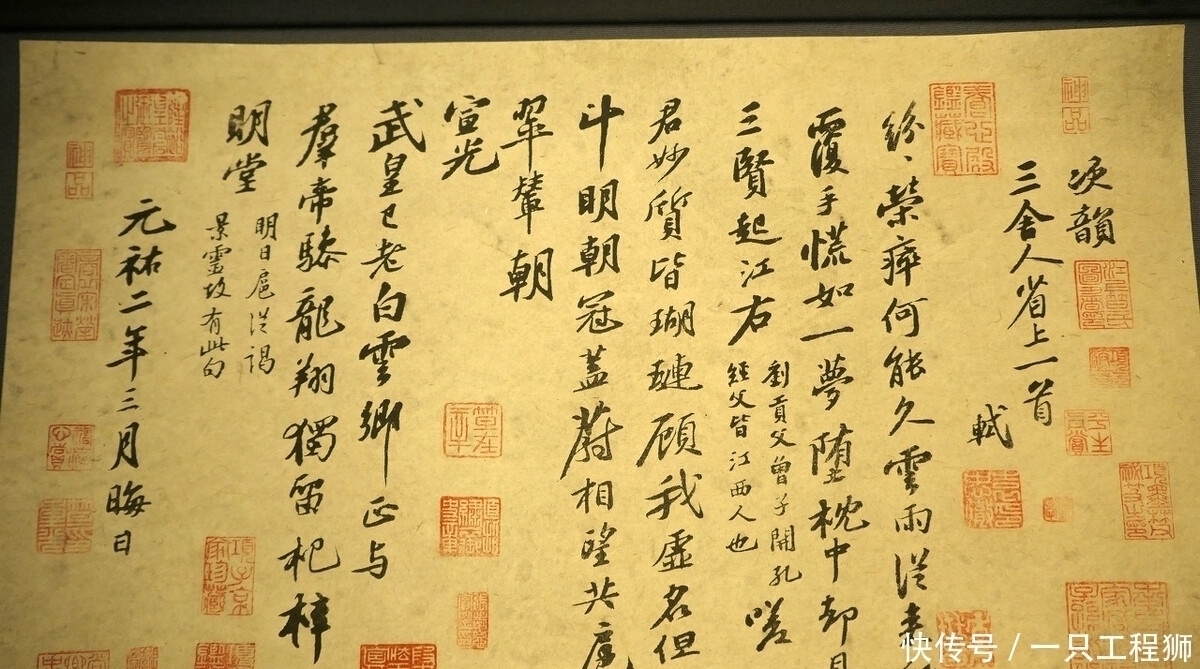 次韻
三舍人省上一首
軾
紛、榮瘁何能久雲雨從来
覆手慌如一夢墮枕中却見
三賢起江右
劉貢父曾子開孔
經父皆江西人也
嗟
君妙質皆瑚璉顧我虛名但
斗明朝冠蓋蔚相望共扈
翠輦朝
宣光
武皇已老白雲鄉正与
羣帝驂龍翔獨留杞梓
明堂
明日扈從謁
景靈故有此句
元祐二年三月晦日
神品
養心殿鑑藏寶
神品
項子京家珍藏
快传号 / 一只工程狮